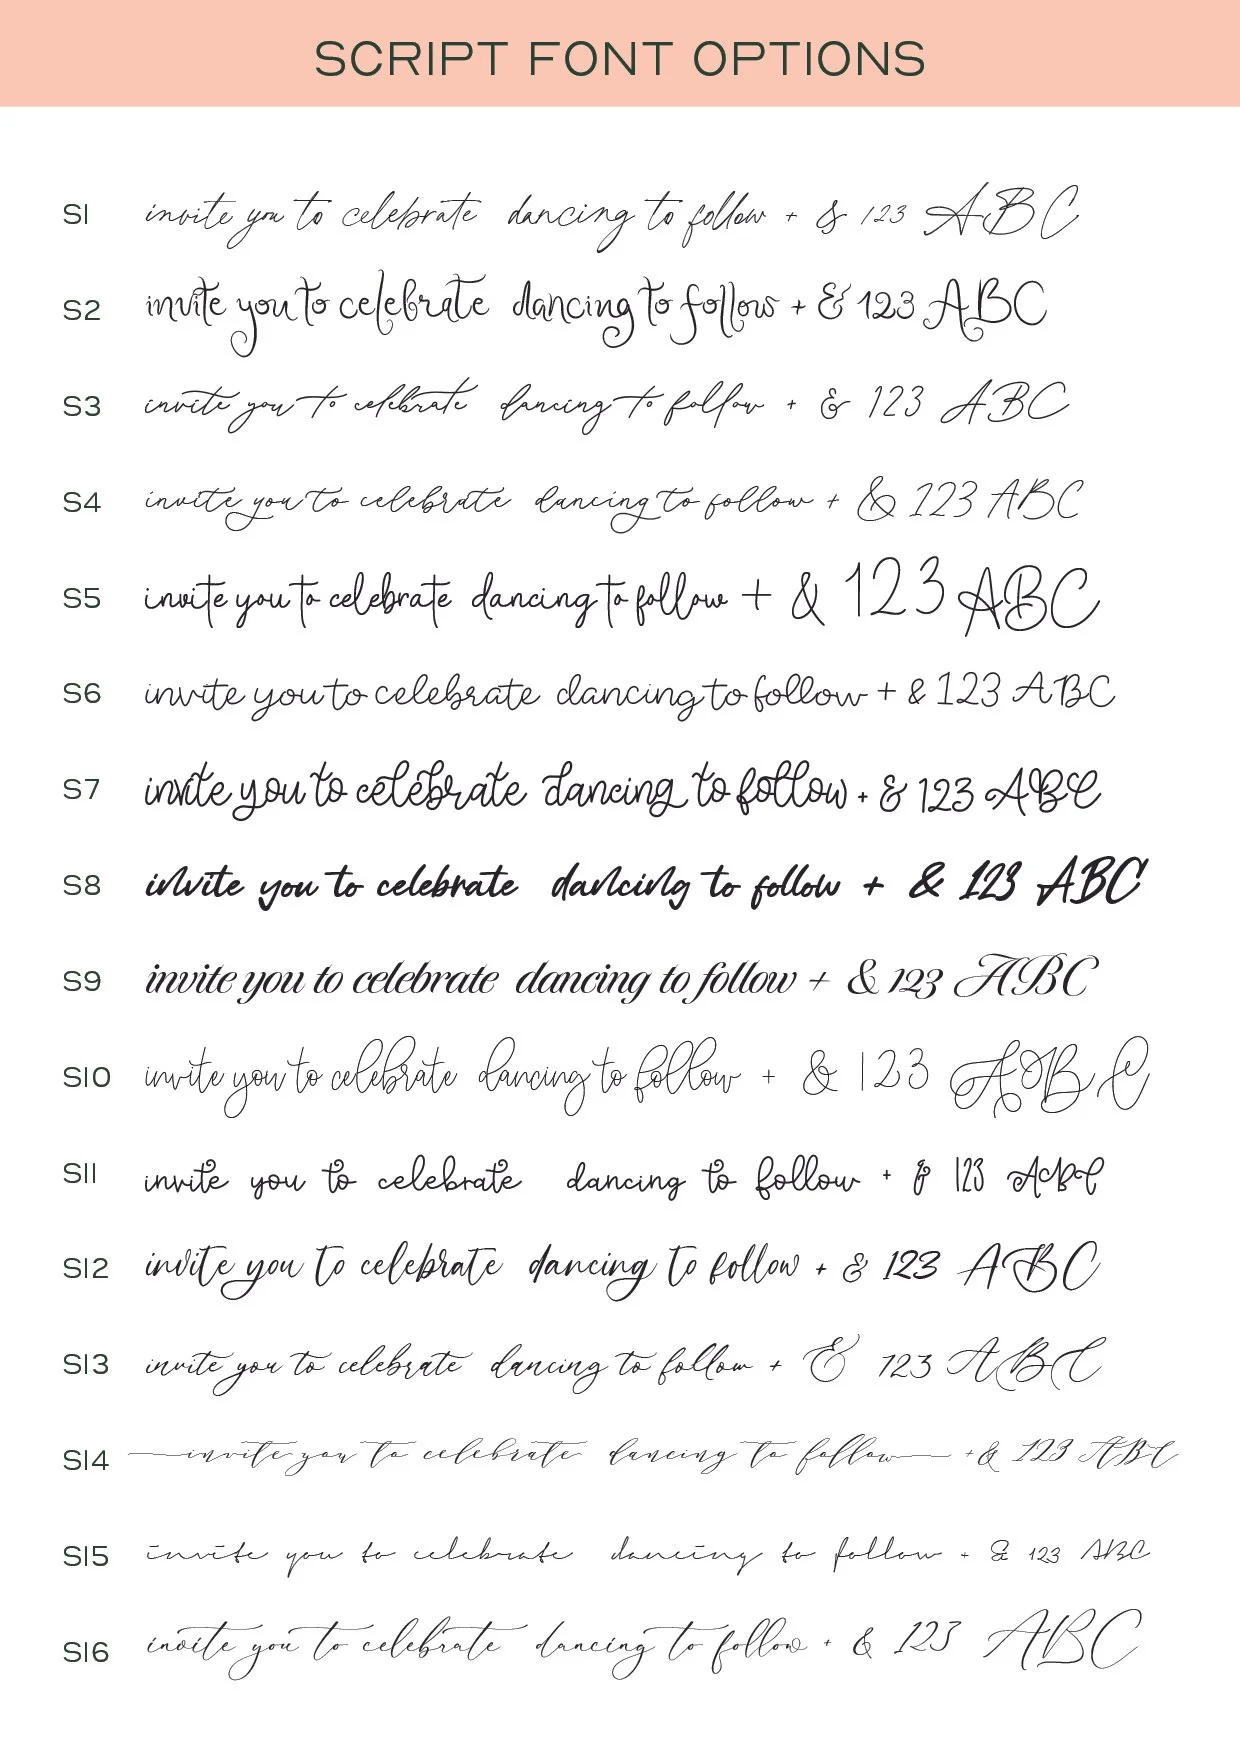 SCRIPT FONT OPTIONS
S1 invite you to celebrate dancing to follow + & 123 ABC
S2 invite you to celebrate dancing to follow + & 123 ABC
S3 invite you to celebrate dancing to follow + & 123 ABC
S4 invite you to celebrate dancing to follow + & 123 ABC
S5 invite you to celebrate dancing to follow + & 123 ABC
S6 invite you to celebrate dancing to follow + & 123 ABC
S7 invite you to celebrate dancing to follow + & 123 ABC
S8 invite you to celebrate dancing to follow + & 123 ABC
S9 invite you to celebrate dancing to follow + & 123 ABC
S10 invite you to celebrate dancing to follow + & 123 ABC
S11 invite you to celebrate dancing to follow + & 123 ABC
S12 invite you to celebrate dancing to follow + & 123 ABC
S13 invite you to celebrate dancing to follow + & 123 ABC
S14 invite you to celebrate dancing to follow + & 123 ABC
S15 invite you to celebrate dancing to follow + & 123 ABC
S16 invite you to celebrate dancing to follow + & 123 ABC